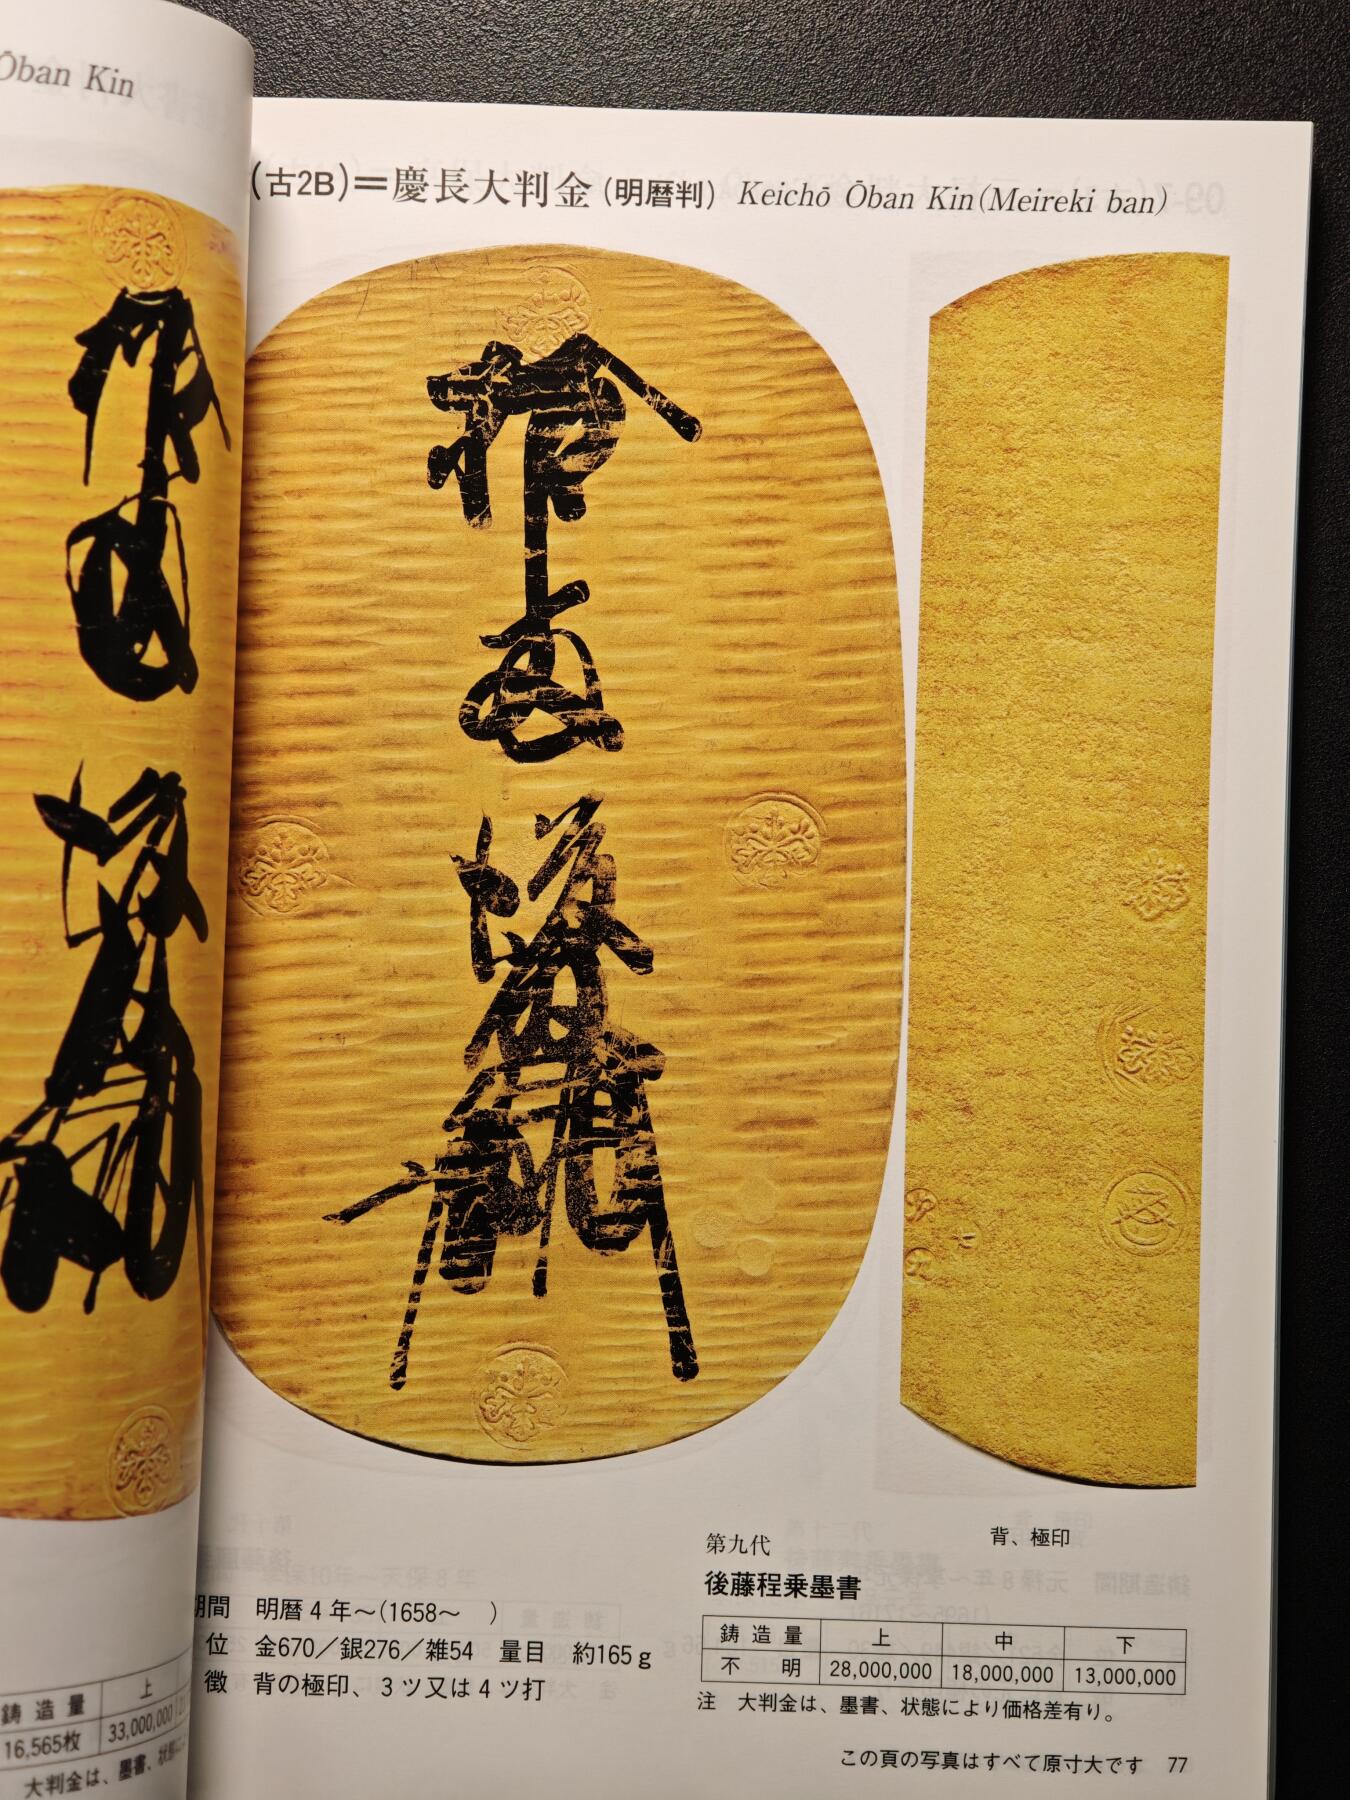 Ōban Kin
鋳造量 上
16,565枚 33,000,000
大判金は、墨書、状態によ
(古2B)=慶長大判金(明暦判) Keichō Ōban Kin(Meireki ban)
背、極印
第九代
後藤程乗墨書
期間 明暦4年~(1658~ )
位 金670/銀276/雑54 量目 約165g
徴 背の極印、3ツ又は4ツ打
鋳造量 上 中 下
不明 28,000,000 18,000,000 13,000,000
注 大判金は、墨書、状態により価格差有り。
この頁の写真はすべて原寸大です 77